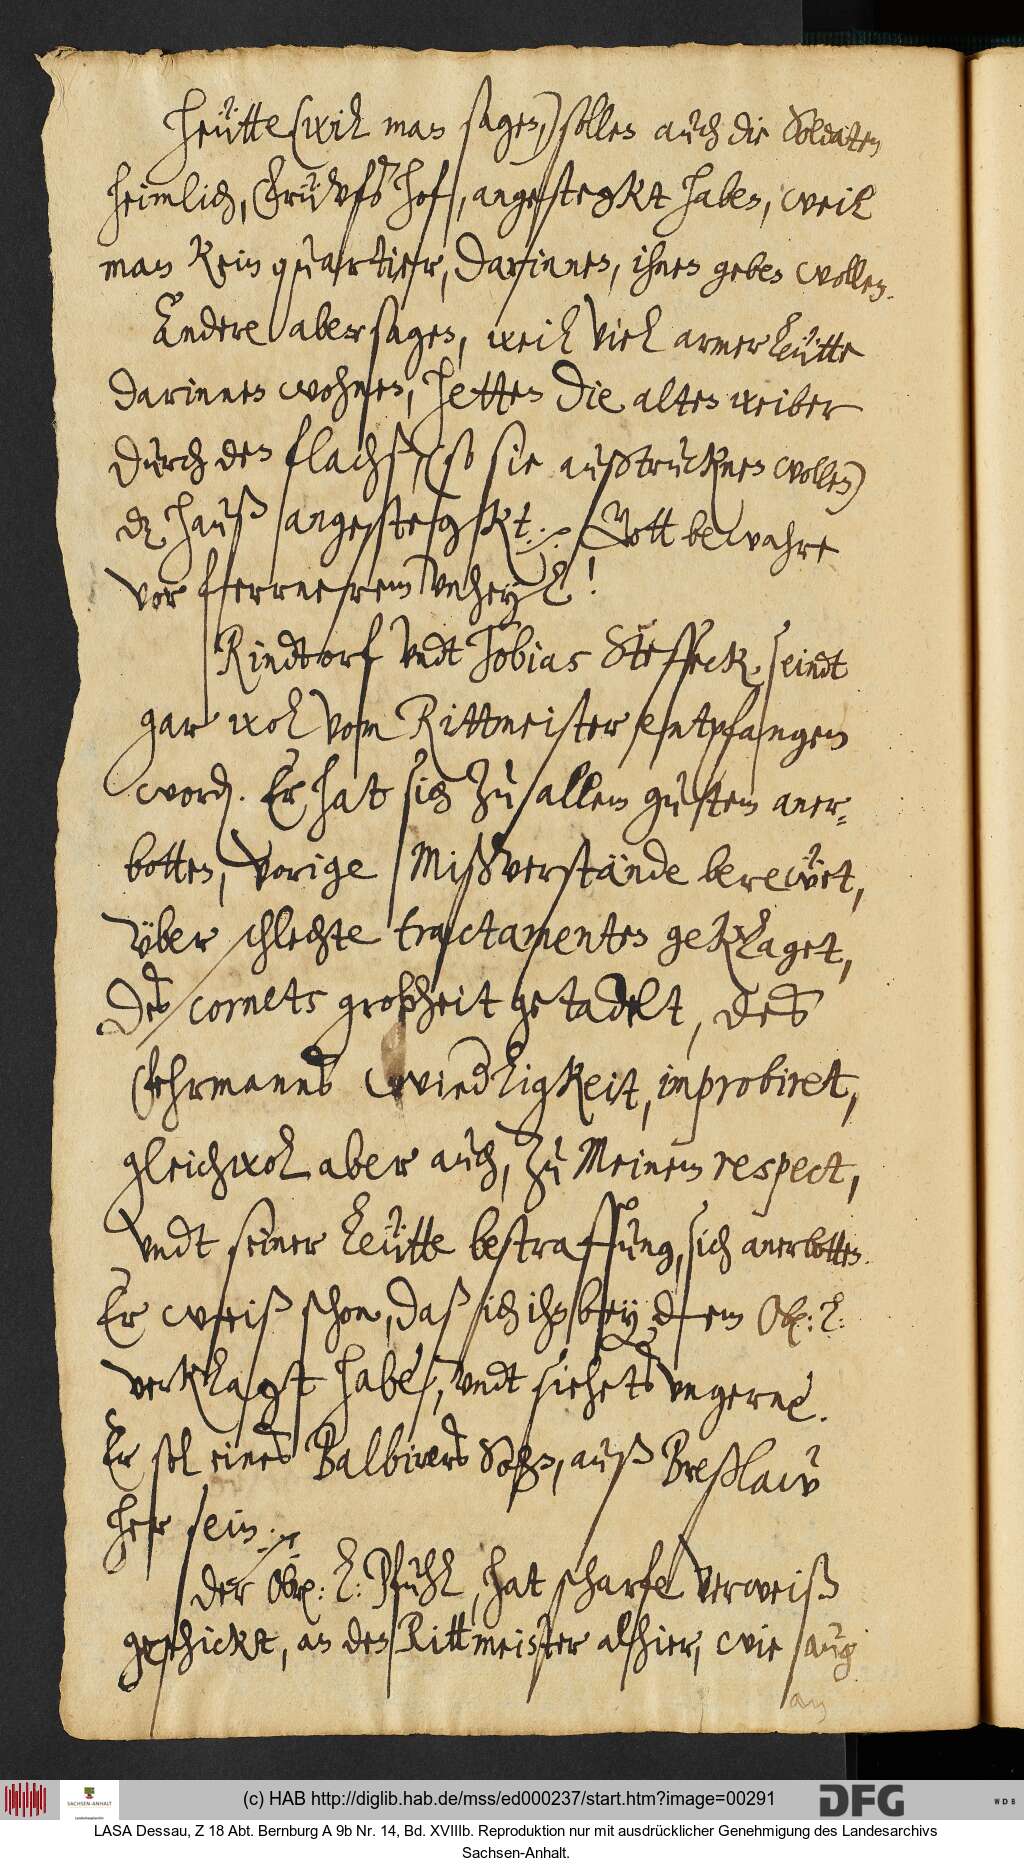 Heütte (will man sagen,) sollen auch die Soldaten
heimlich, Erüdvfs hof, angestegkt haben, weil
man kein quartier, darinnen, ihnen geben wollen.
Andere aber sagen, weil viel armer leütte
darinnen wohnen, hetten die alten weiber
durch den flachß, (so sie außtrucknen wollen)
dz hauß angestegkt. Gott bewahre
vor ffernerem vnheyl!
Rindtorf vndt Tobias Steffeck, seindt
gar wol vom Rittmeister entpfangen
word. Er hat sich zu allem gutem aner-
botten, vorige Mißverstände berewet,
vber schlechte tractamenten geklaget,
des cornets großheit getadelt, des
Ehrmanns wiedligkeit, improbiret,
gleichwol aber auch, zu Meinem respect,
vndt seiner leütte bestraffung, sich anerbotten.
Er weiß schon, daß ich ihn bey dem Ob: l:
verklagt habe, vndt siehets vngerne.
Er sol eines Balbirers Sohn, auß Breßlaw
her sein.
Der Obr: l: Pfuhl, hat scharfe verweiß
geschickt, an den Rittmeister alhier, wie auch
an
(c) HAB http://diglib.hab.de/mss/ed000237/start.htm?image=00291
SACHSEN-ANHALT
DFG
WDB
LASA Dessau, Z 18 Abt. Bernburg A 9b Nr. 14, Bd. XVIIIb. Reproduktion nur mit ausdrücklicher Genehmigung des Landesarchivs
Sachsen-Anhalt.